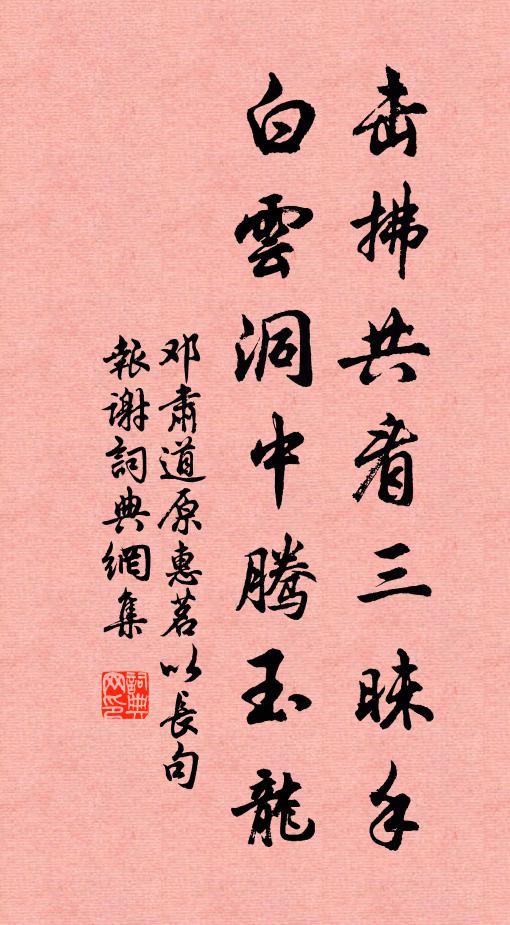 击拂共看三昧手
白雲洞中腾玉龍
邓肃道原惠茗以長句
報谢詞典網集
詞典网印